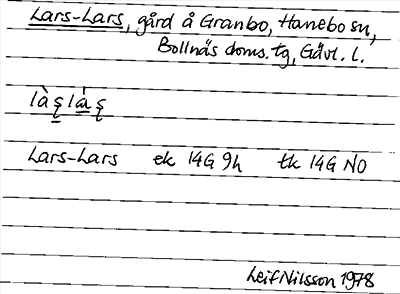 Lars-Lars, gård å Granbo, Hanebo sn,
Bollnäs doms. tg, Gävl. l.
làş làş
Lars-Lars ek 14G 9h tk 14G NO
Leif Nilsson 1978